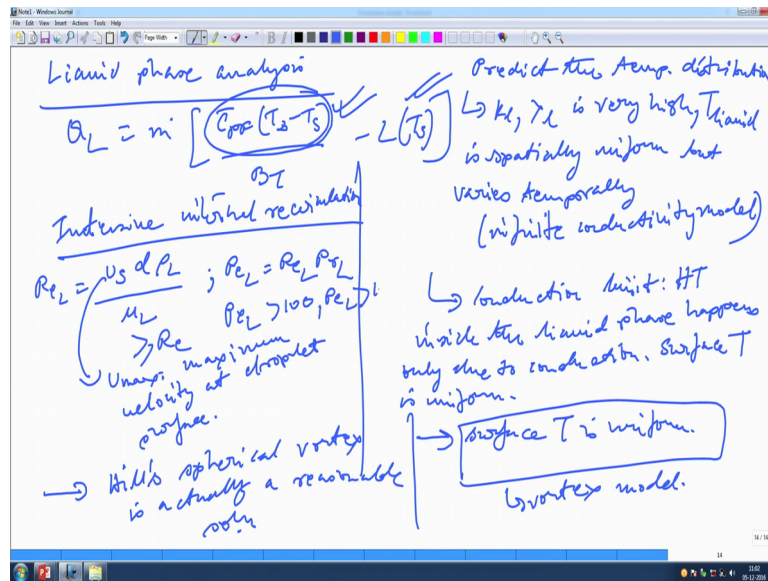 Note1 - Windows Journal
File Edit View Insert Actions Tools Help
Page Width
Liquid phase analysis
Q_L = ṁ [ C̄pF (T∞ - Ts) / BT - L(Ts) ]
Intensive internal recirculation
Re_L = Us d ρL / μL ; Pe_L = Re_L Pr_L
>> Re
Pe_L > 100, Pe_L >
Umax. maximum
velocity at droplet
surface.
→ Hill's spherical vortex
is actually a reasonable
soln
Predict the temp. distribution
↳ kl, >l is very high, Tliquid
is spatially uniform but
varies temporally
(infinite conductivity model)
↳ Conduction limit: HT
inside the liquid phase happens
only due to conduction. Surface T
is uniform.
→ Surface T is uniform.
↳ vortex model.
14 / 14
14
11:02
05-12-2016